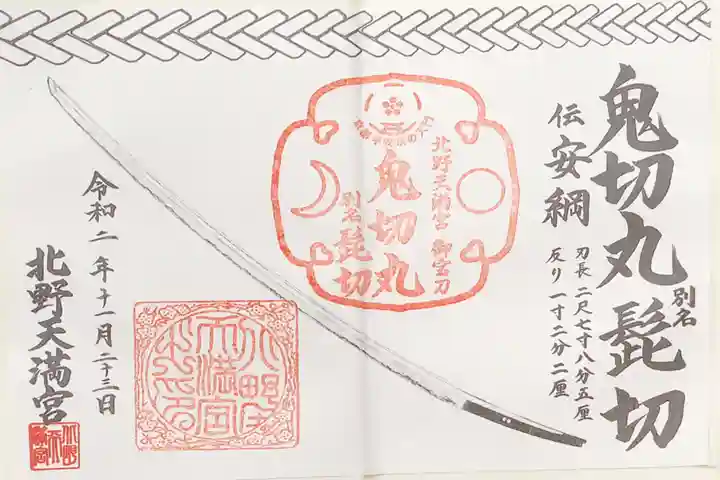 鬼切丸 別名 髭切
伝 安綱
刃長 二尺七寸八分五厘
反り 一寸二分二厘
北野天満宮 御宝刀
鬼切丸
別名 髭切
令和二年十一月二十三日
北野天満宮